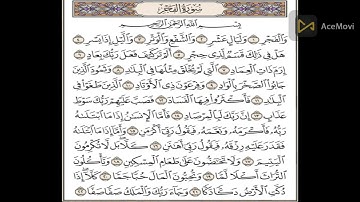 AceMovi
سورة الفجر
بِسْمِ اللَّهِ الرَّحْمَٰنِ الرَّحِيمِ
وَالْفَجْرِ ١ وَلَيَالٍ عَشْرٍ ٢ وَالشَّفْعِ وَالْوَتْرِ ٣ وَاللَّيْلِ إِذَا يَسْرِ ٤
هَلْ فِي ذَٰلِكَ قَسَمٌ لِّذِي حِجْرٍ ٥ أَلَمْ تَرَ كَيْفَ فَعَلَ رَبُّكَ بِعَادٍ ٦
إِرَمَ ذَاتِ الْعِمَادِ ٧ الَّتِي لَمْ يُخْلَقْ مِثْلُهَا فِي الْبِلَادِ ٨ وَثَمُودَ الَّذِينَ
جَابُوا الصَّخْرَ بِالْوَادِ ٩ وَفِرْعَوْنَ ذِي الْأَوْتَادِ ١٠ الَّذِينَ طَغَوْا فِي
الْبِلَادِ ١١ فَأَكْثَرُوا فِيهَا الْفَسَادَ ١٢ فَصَبَّ عَلَيْهِمْ رَبُّكَ سَوْطَ
عَذَابٍ ١٣ إِنَّ رَبَّكَ لَبِالْمِرْصَادِ ١٤ فَأَمَّا الْإِنسَانُ إِذَا مَا ابْتَلَاهُ
رَبُّهُ فَأَكْرَمَهُ وَنَعَّمَهُ فَيَقُولُ رَبِّي أَكْرَمَنِ ١٥ وَأَمَّا إِذَا مَا ابْتَلَاهُ
فَقَدَرَ عَلَيْهِ رِزْقَهُ فَيَقُولُ رَبِّي أَهَانَنِ ١٦ كَلَّا بَل لَّا تُكْرِمُونَ
الْيَتِيمَ ١٧ وَلَا تَحَاضُّونَ عَلَىٰ طَعَامِ الْمِسْكِينِ ١٨ وَتَأْكُلُونَ
التُّرَاثَ أَكْلًا لَّمًّا ١٩ وَتُحِبُّونَ الْمَالَ حُبًّا جَمًّا ٢٠ كَلَّا إِذَا
دُكَّتِ الْأَرْضُ دَكًّا دَكًّا ٢١ وَجَاءَ رَبُّكَ وَالْمَلَكُ صَفًّا صَفًّا ٢٢